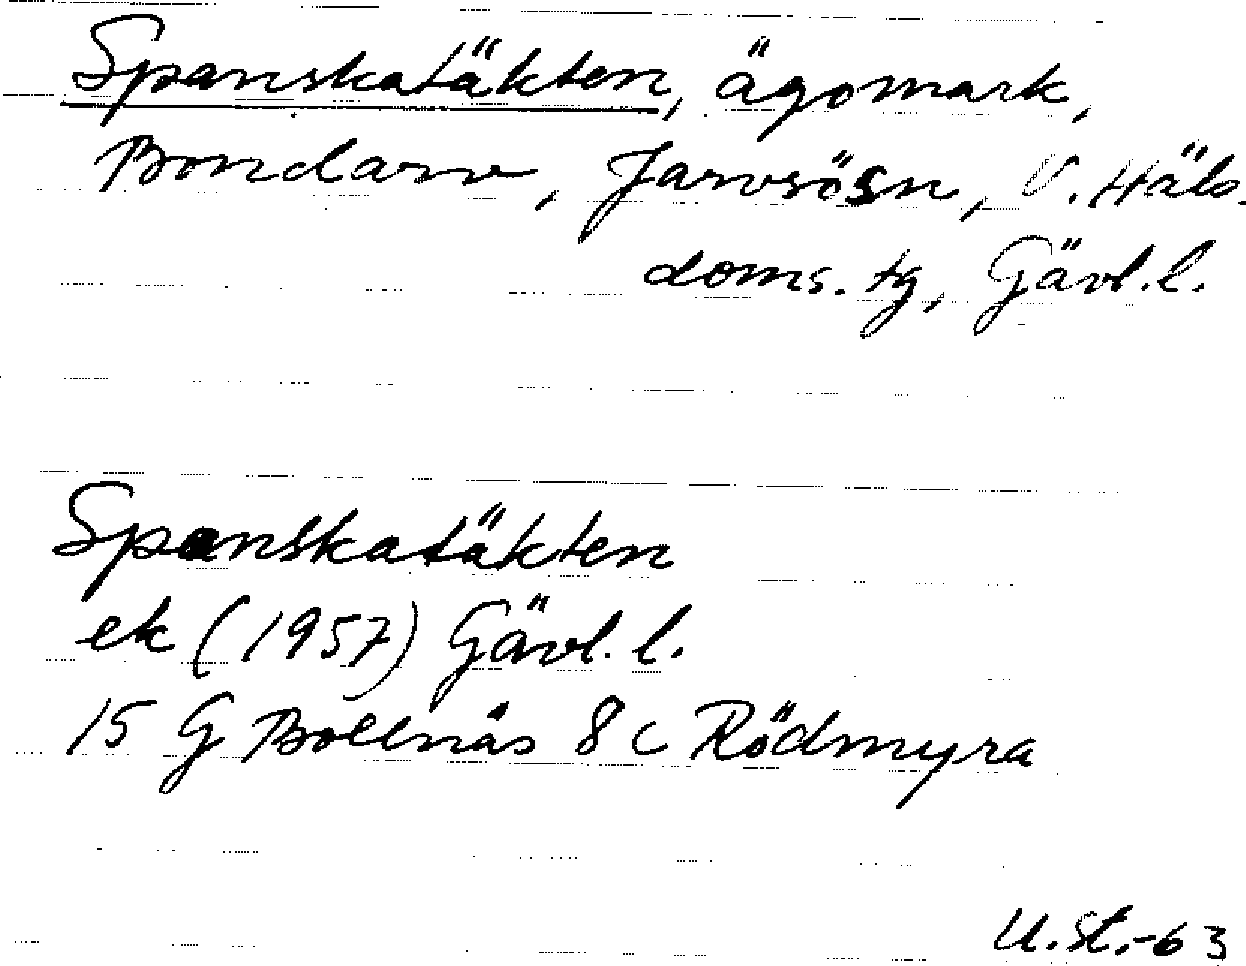 Spanskatäkten, ägomark,
Bondarv, Järvsösn, V. Häls.
doms. tg, Gävl.l.
Spanskatäkten
ek (1957) Gävl. l.
15 G Bollnäs 8 c Rödmyra
U.St.-63